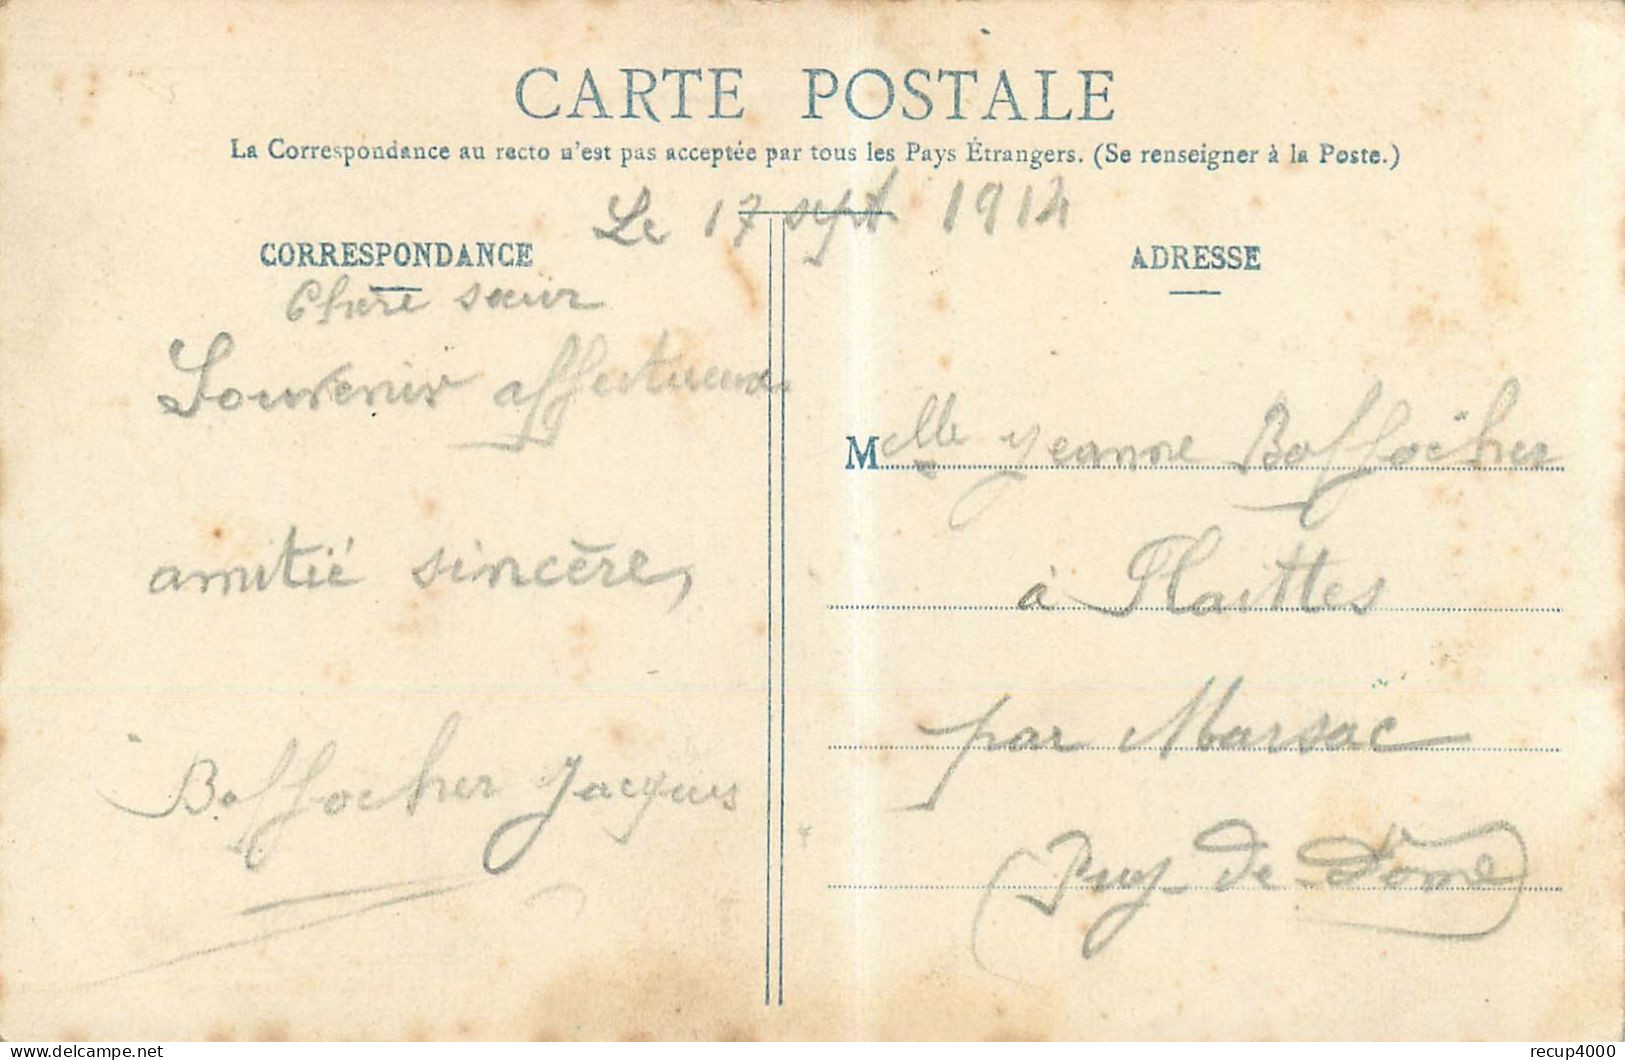 CARTE POSTALE
La Correspondance au recto n'est pas acceptée par tous les Pays Étrangers. (Se renseigner à la Poste.)
Le 17 sept 1914
CORRESPONDANCE
Chère sœur
Souvenir affectueux
amitié sincère,
Boffocher Jacques
ADRESSE
Melle Jeanne Boffocher
à Plaittes
par Marsac
(Puy-de-Dôme)
delcampe.net
recup4000